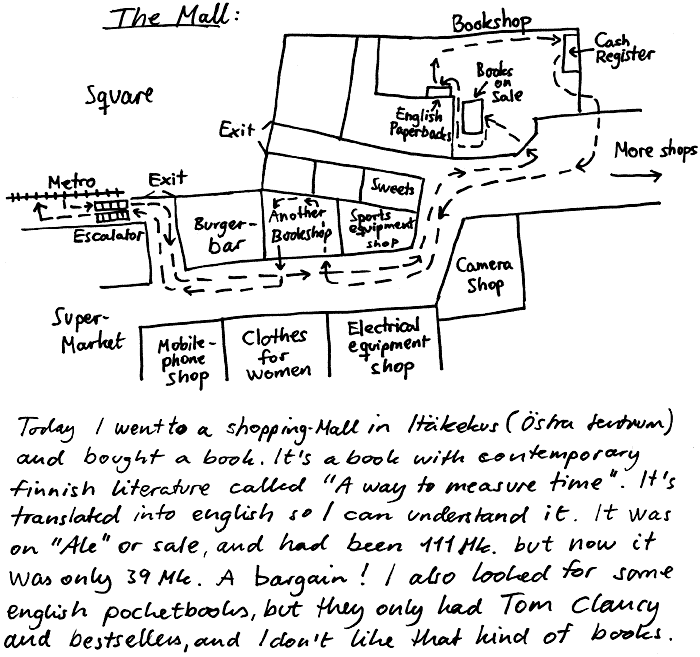 The Mall:
Bookshop
Cash
Register
Books
on
Sale
Square
English
Paperbacks
Exit
More shops
Metro
Exit
Sweets
Escalator
Burger-
bar
Another
Bookshop
Sports
equipment
shop
Camera
Shop
Super-
Market
Mobile-
phone
shop
Clothes
for
women
Electrical
equipment
shop
Today I went to a shopping-Mall in Itäkekus (Östra Sentrum)
and bought a book. It's a book with contemporary
finnish literature called "A way to measure time". It's
translated into english so I can understand it. It was
on "Ale" or sale, and had been 111 Mk. but now it
was only 39 Mk. A bargain! I also looked for some
english pocketbooks, but they only had Tom Clancy
and bestsellers, and I don't like that kind of books.